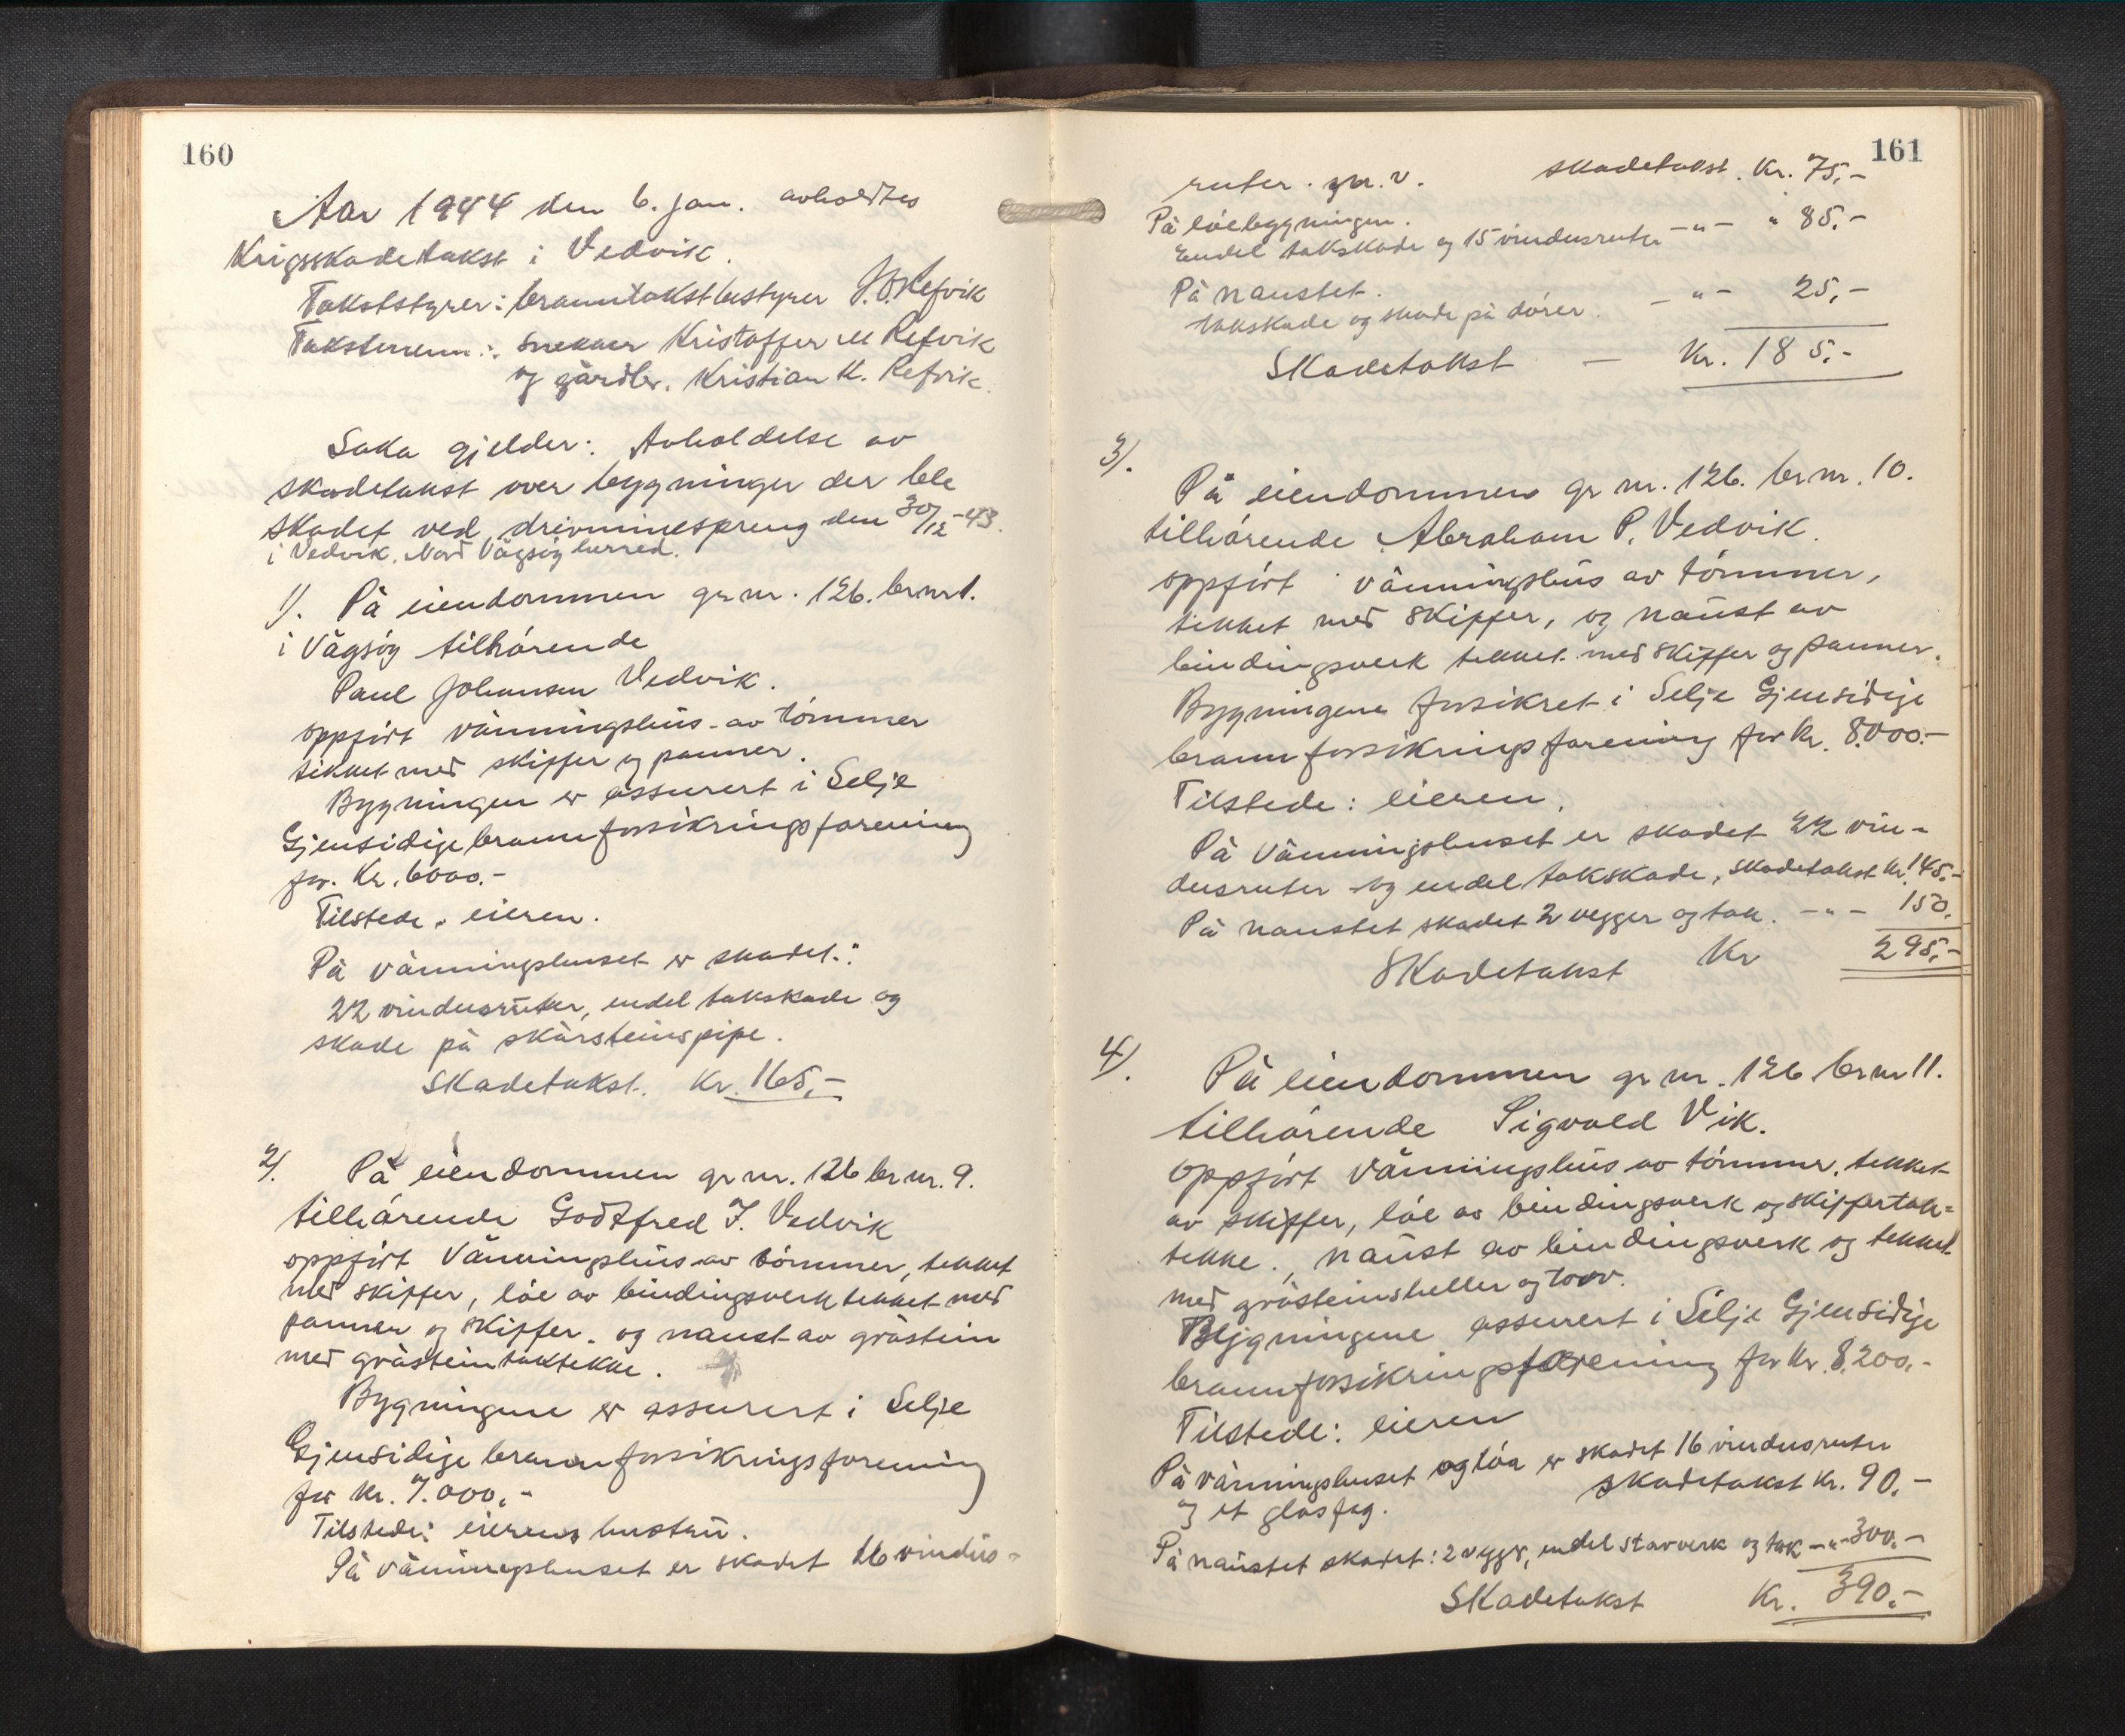 160
Aar 1944 den 6. jan. avholdtes
Krigsskadetakst i Vedvik.
Takststyrer: branntakstbestyrer Refvik
Takstmenn: Snekker Kristoffer M Refvik
og gårdbr. Kristian K. Refvik.
Saka gjelder: Avholdelse av
skadetakst over bygninger der ble
skadet ved drivminespreng den 30/12-43.
i Vedvik. Nord Vågsøy herred.
1). På eiendommen gr nr. 126. br nr 1.
i Vågsøy tilhörende
Paul Johansen Vedvik.
oppfört våningshus av tömmer
tekket med skiffer og panner.
Bygningen er assurert i Selje
Gjensidige brannforsikringsforening
for. Kr. 6000.-
Tilstede: eieren.
På våningshuset er skadet:
22 vindusruter, endel takskade og
skade på skårsteinspipe.
Skadetakst. Kr. 165,-
2). På eiendommen gr nr. 126 br nr. 9.
tilhörende Godtfred J. Vedvik
oppfört Våningshus av tömmer, tekket
med skiffer, löe av bindingsverk tekket med
panner og skiffer. og naust av gråstein
med gråsteintaktekke.
Bygningene er assurert i Selje
Gjensidige brannforsikringsforening
for kr. 7.000,-
Tilstede: eierens hustru.
På våningshuset er skadet 16 vindus-
161
ruter. skadetakst. Kr. 75,-
På löebygningen.
Endel takskade og 15 vindusruter -"- " 85.-
På naustet.
takskade og skade på dörer. -"- 25,-
Skadetakst — Kr. 185.-
3). På eiendommen gr nr. 126. br nr. 10.
tilhörende Abraham P. Vedvik.
oppfört våningshus av tömmer,
tekket med skiffer, og naust av
bindingsverk tekket med skiffer og panner.
Bygningene forsikret i Selje Gjensidige
brannforsikringsforening for kr. 8.000.-
Tilstede: eieren.
På våningshuset er skadet 22 vin-
dusruter og endel takskade, skadetakst kr. 145.-
På naustet skadet 2 vegger og tak. -"- 150.
Skadetakst Kr 295,-
4). På eiendommen gr nr. 126 br nr 11.
tilhörende Sigvald Vik.
oppfört våningshus av tömmer, tekket
av skiffer, löe av bindingsverk og skiffertak-
tekke., naust av bindingsverk og tekket
med gråsteinsheller og torv.
Bygningene assurert i Selje Gjensidige
brannforsikringsforening for kr. 8.200.-
Tilstede: eieren
På våningshuset og löa er skadet 16 vindusruter
og et glasfag. skadetakst kr. 90.-
På naustet skadet: 2 vegger, endel stavverk og tak -"- 300.-
Skadetakst Kr. 390.-